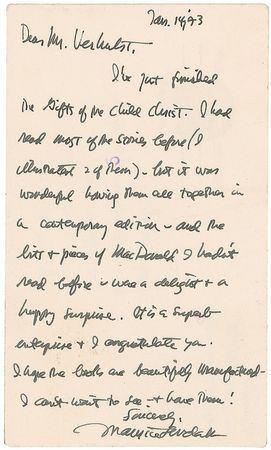 Jan. 14, '93
Dear Mr. Verhulst,
I've just finished
the Gifts of the Child Christ. I had
read most of the stories before (I
illustrated 2 of them) - but it was
wonderful having them all together in
a contemporary edition - and the
bits + pieces of MacDonald I hadn't
read before - was a delight + a
happy surprise. It is a superb
enterprise + I congratulate you.
I hope the books are beautifully manufactured -
I can't wait to see + have them!
Sincerely,
Maurice Sendak